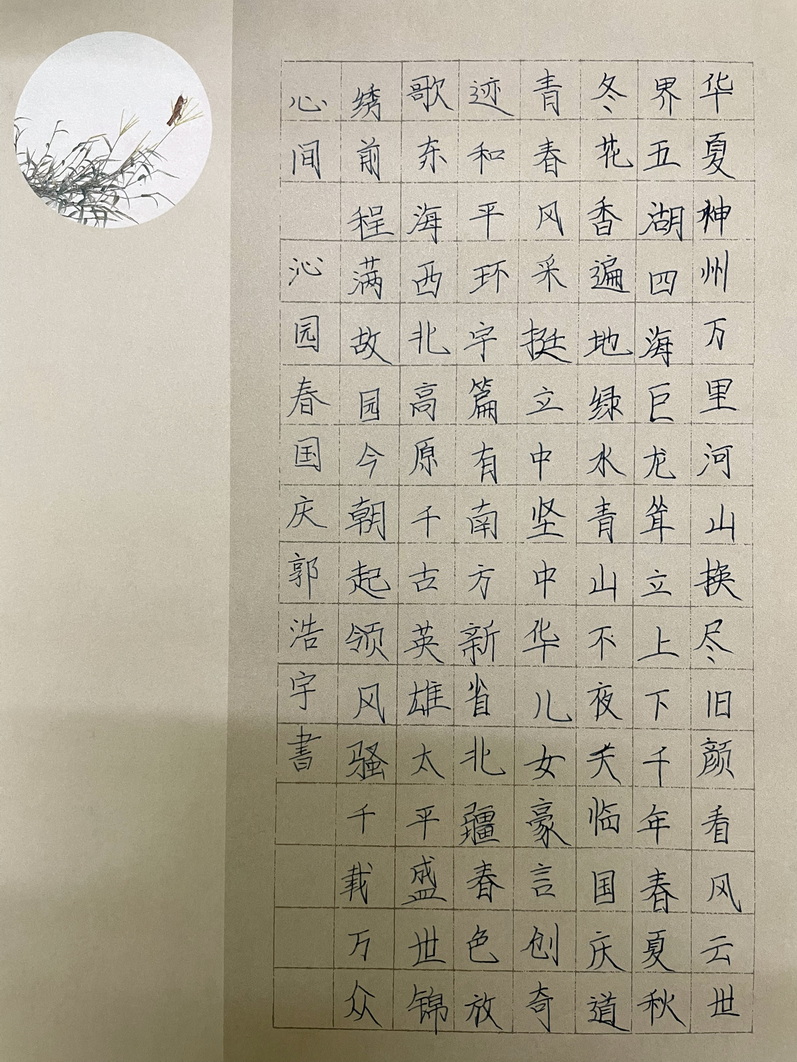 华夏神州万里河山换尽旧颜看风云世
界五湖四海巨龙耸立上下千年春夏秋
冬花香遍地绿水青山不夜天临国庆道
青春风采挺立中坚中华儿女豪言创奇
迹和平环宇篇有南方新省北疆春色放
歌东海西北高原千古英雄太平盛世锦
绣前程满故园今朝起领风骚千载万众
心间 沁园春国庆郭浩宇書